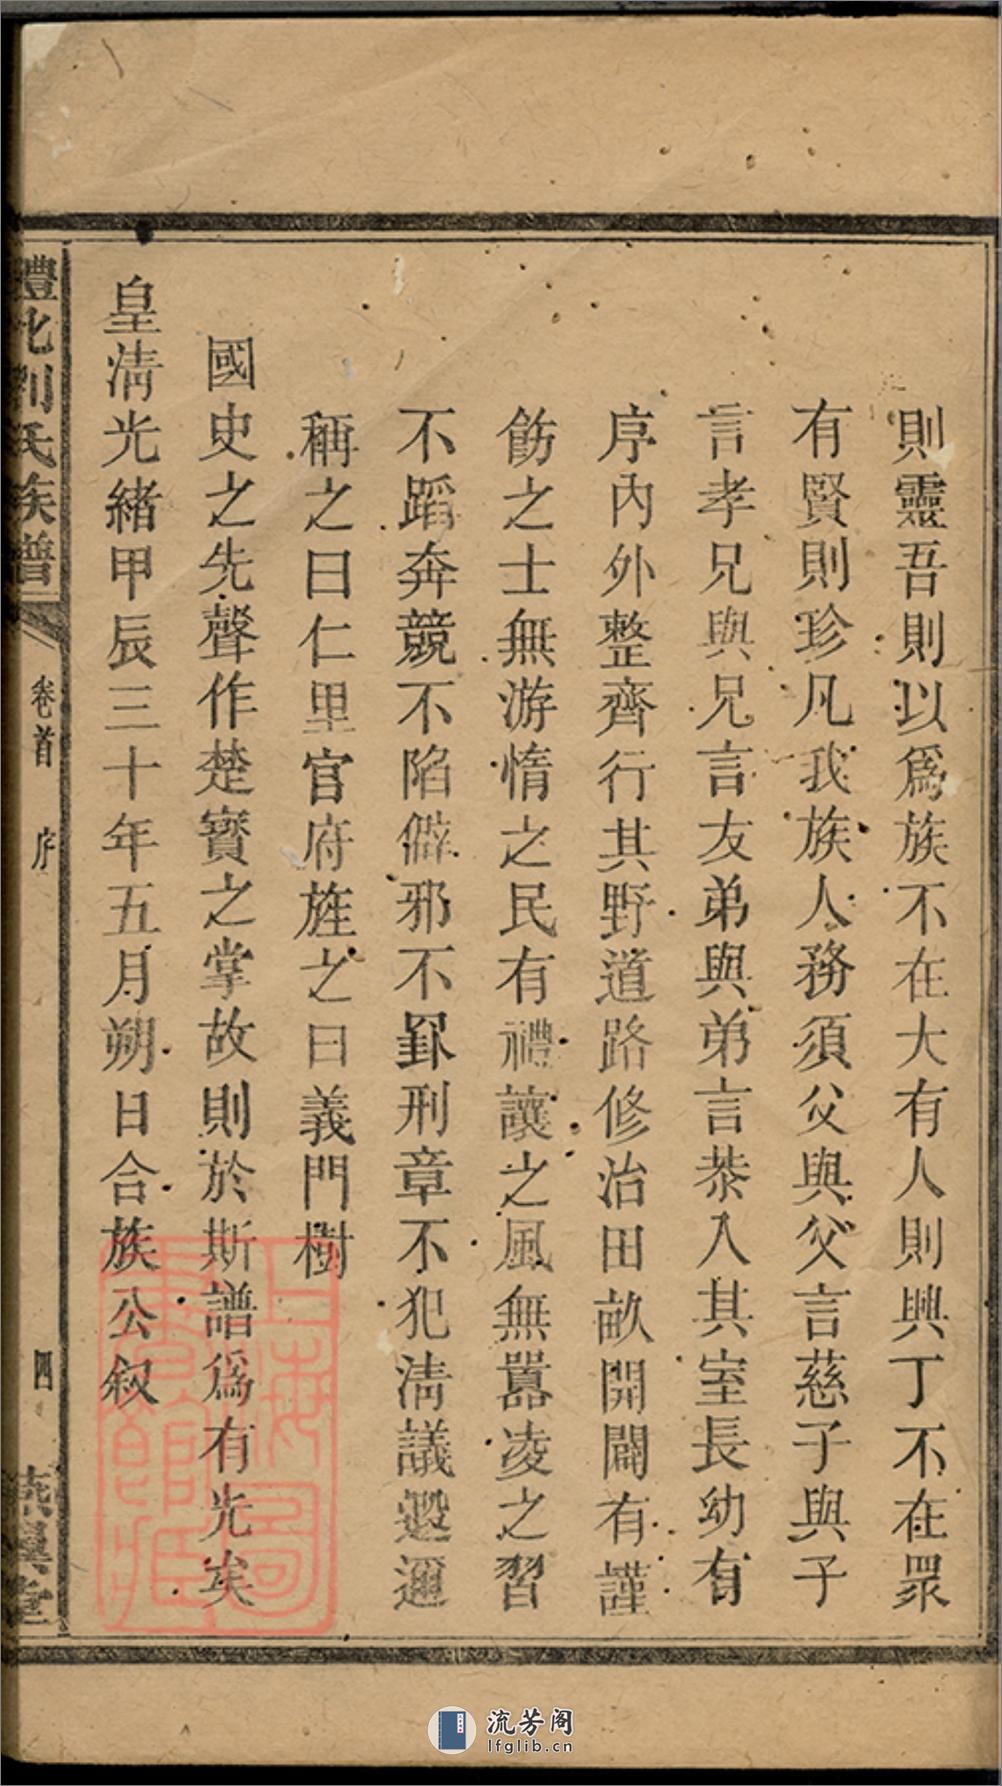 則靈吾則以爲族不在大有人則興丁不在眾
有賢則珍凡我族人務須父與父言慈子與子
言孝兄與兄言友弟與弟言恭入其室長幼有
序內外整齊行其野道路修治田畝開闢有謹
飭之士無游惰之民有禮讓之風無囂凌之習
不蹈奔競不陷僻邪不罹刑章不犯淸議遐邇
稱之曰仁里官府旌之曰義門樹
國史之先聲作楚寳之掌故則於斯譜爲有光矣
皇淸光緒甲辰三十年五月朔日合族公叙
澧北劉氏族譜
卷首
序
四
堂
上海圖書館藏
流芳阁
lfglib.cn